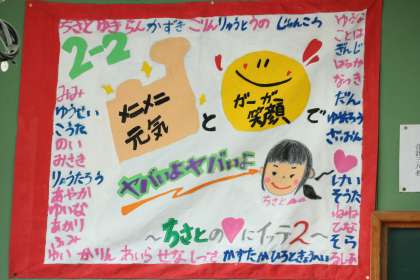 ちさと なき らん かずき ごりん りゅうとうの じゅんころ
2-2
メニメニ
元気
と
ガーガー
笑顔
で
ヤバいよヤバいよ
ちさと
～ちさとの♥にイッテ2～
みなみ
ゆうせい
こうた
のい
みさき
りょうたろう
あやか
ゆいな
あかり
ふみ
ゆい かりん あいら せな しっさ かずたか ひろと きょうへい
ゆうな
ことは
ぎんじ
はるか
なつき
だん
ゆぞろう
ざおおん
けい
そうた
ひな
そら